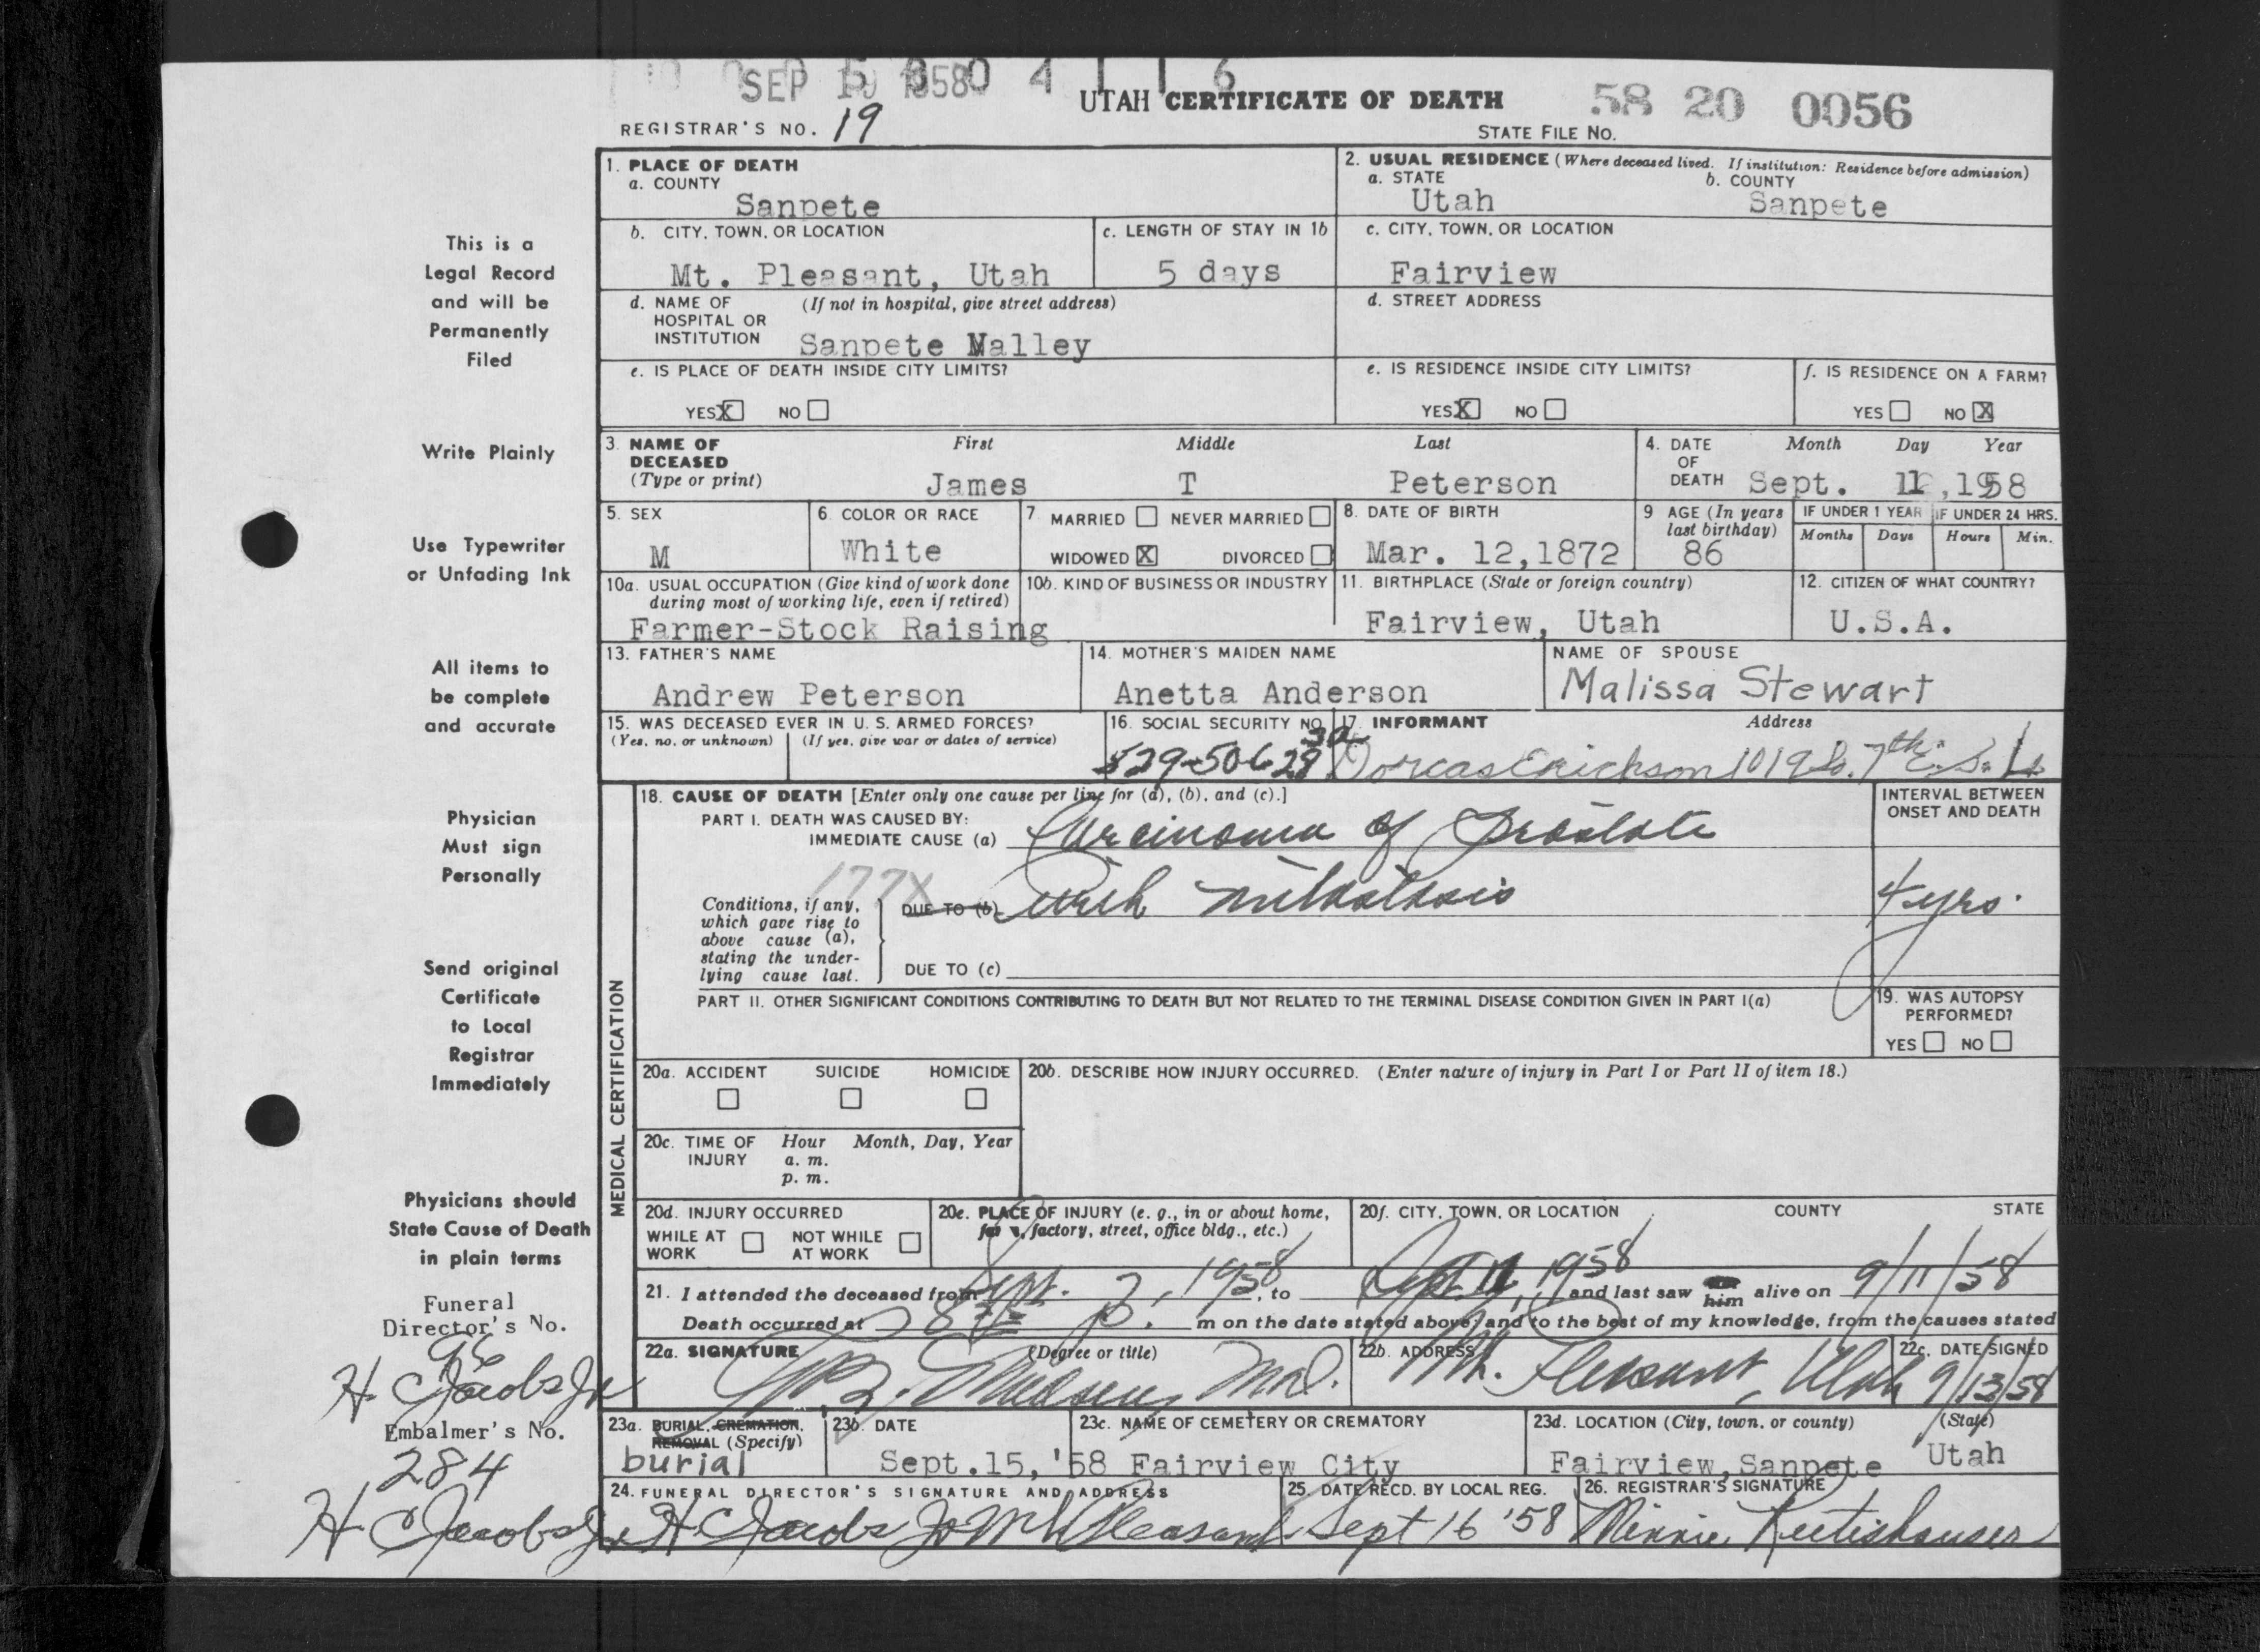 SEP 19 1958
UTAH CERTIFICATE OF DEATH
58 20 0056
REGISTRAR'S NO. 19
STATE FILE NO.
This is a
Legal Record
and will be
Permanently
Filed
Write Plainly
Use Typewriter
or Unfading Ink
All items to
be complete
and accurate
Physician
Must sign
Personally
Send original
Certificate
to Local
Registrar
Immediately
Physicians should
State Cause of Death
in plain terms
Funeral
Director's No.
96
H C Jacobs Jr
Embalmer's No.
284
H C Jacobs Jr
1. PLACE OF DEATH
a. COUNTY
Sanpete
2. USUAL RESIDENCE (Where deceased lived. If institution: Residence before admission)
a. STATE b. COUNTY
Utah Sanpete
b. CITY, TOWN, OR LOCATION
Mt. Pleasant, Utah
c. LENGTH OF STAY IN 1b
5 days
c. CITY, TOWN, OR LOCATION
Fairview
d. NAME OF (If not in hospital, give street address)
HOSPITAL OR
INSTITUTION Sanpete Valley
d. STREET ADDRESS
e. IS PLACE OF DEATH INSIDE CITY LIMITS?
YES X NO
e. IS RESIDENCE INSIDE CITY LIMITS?
YES X NO
f. IS RESIDENCE ON A FARM?
YES NO X
3. NAME OF DECEASED (Type or print)
First Middle Last
James T Peterson
4. DATE OF DEATH
Month Day Year
Sept. 11, 1958
5. SEX
M
6. COLOR OR RACE
White
7. MARRIED NEVER MARRIED
WIDOWED X DIVORCED
8. DATE OF BIRTH
Mar. 12,1872
9 AGE (In years last birthday)
86
IF UNDER 1 YEAR IF UNDER 24 HRS.
Months Days Hours Min.
10a. USUAL OCCUPATION (Give kind of work done
during most of working life, even if retired)
Farmer-Stock Raising
10b. KIND OF BUSINESS OR INDUSTRY
11. BIRTHPLACE (State or foreign country)
Fairview, Utah
12. CITIZEN OF WHAT COUNTRY?
U.S.A.
13. FATHER'S NAME
Andrew Peterson
14. MOTHER'S MAIDEN NAME
Anetta Anderson
NAME OF SPOUSE
Malissa Stewart
15. WAS DECEASED EVER IN U. S. ARMED FORCES?
(Yes, no. or unknown) (If yes, give war or dates of service)
16. SOCIAL SECURITY NO.
17. INFORMANT Address
Dorcas Erickson 1019 So. 7th E. S. L.
MEDICAL CERTIFICATION
18. CAUSE OF DEATH [Enter only one cause per line for (a), (b), and (c).]
PART I. DEATH WAS CAUSED BY:
IMMEDIATE CAUSE (a) Carcinoma of Prostate
177X
Conditions, if any,
which gave rise to
above cause (a),
stating the under-
lying cause last.
DUE TO (b) with metastasis
DUE TO (c)
INTERVAL BETWEEN
ONSET AND DEATH
4 yrs.
PART II. OTHER SIGNIFICANT CONDITIONS CONTRIBUTING TO DEATH BUT NOT RELATED TO THE TERMINAL DISEASE CONDITION GIVEN IN PART I(a)
19. WAS AUTOPSY
PERFORMED?
YES NO
20a. ACCIDENT SUICIDE HOMICIDE
20b. DESCRIBE HOW INJURY OCCURRED. (Enter nature of injury in Part I or Part II of item 18.)
20c. TIME OF INJURY
Hour Month, Day, Year
a. m.
p. m.
20d. INJURY OCCURRED
WHILE AT WORK NOT WHILE AT WORK
20e. PLACE OF INJURY (e. g., in or about home,
farm, factory, street, office bldg., etc.)
20f. CITY, TOWN, OR LOCATION COUNTY STATE
21. I attended the deceased from Sept. 1958, to Sept. 11, 1958 and last saw him alive on 9/11/58
Death occurred at P. m on the date stated above, and to the best of my knowledge, from the causes stated
22a. SIGNATURE (Degree or title)
Madsen M.D.
22b. ADDRESS
Mt. Pleasant, Utah
22c. DATE SIGNED
9/13/58
23a. BURIAL, CREMATION,
REMOVAL (Specify)
burial
23b. DATE
Sept.15,'58
23c. NAME OF CEMETERY OR CREMATORY
Fairview City
23d. LOCATION (City, town, or county) (State)
Fairview,Sanpete Utah
24. FUNERAL DIRECTOR'S SIGNATURE AND ADDRESS
H C Jacobs Jr Mt Pleasant
25. DATE RECD. BY LOCAL REG.
Sept 16 '58
26. REGISTRAR'S SIGNATURE
Minnie Rutishauser